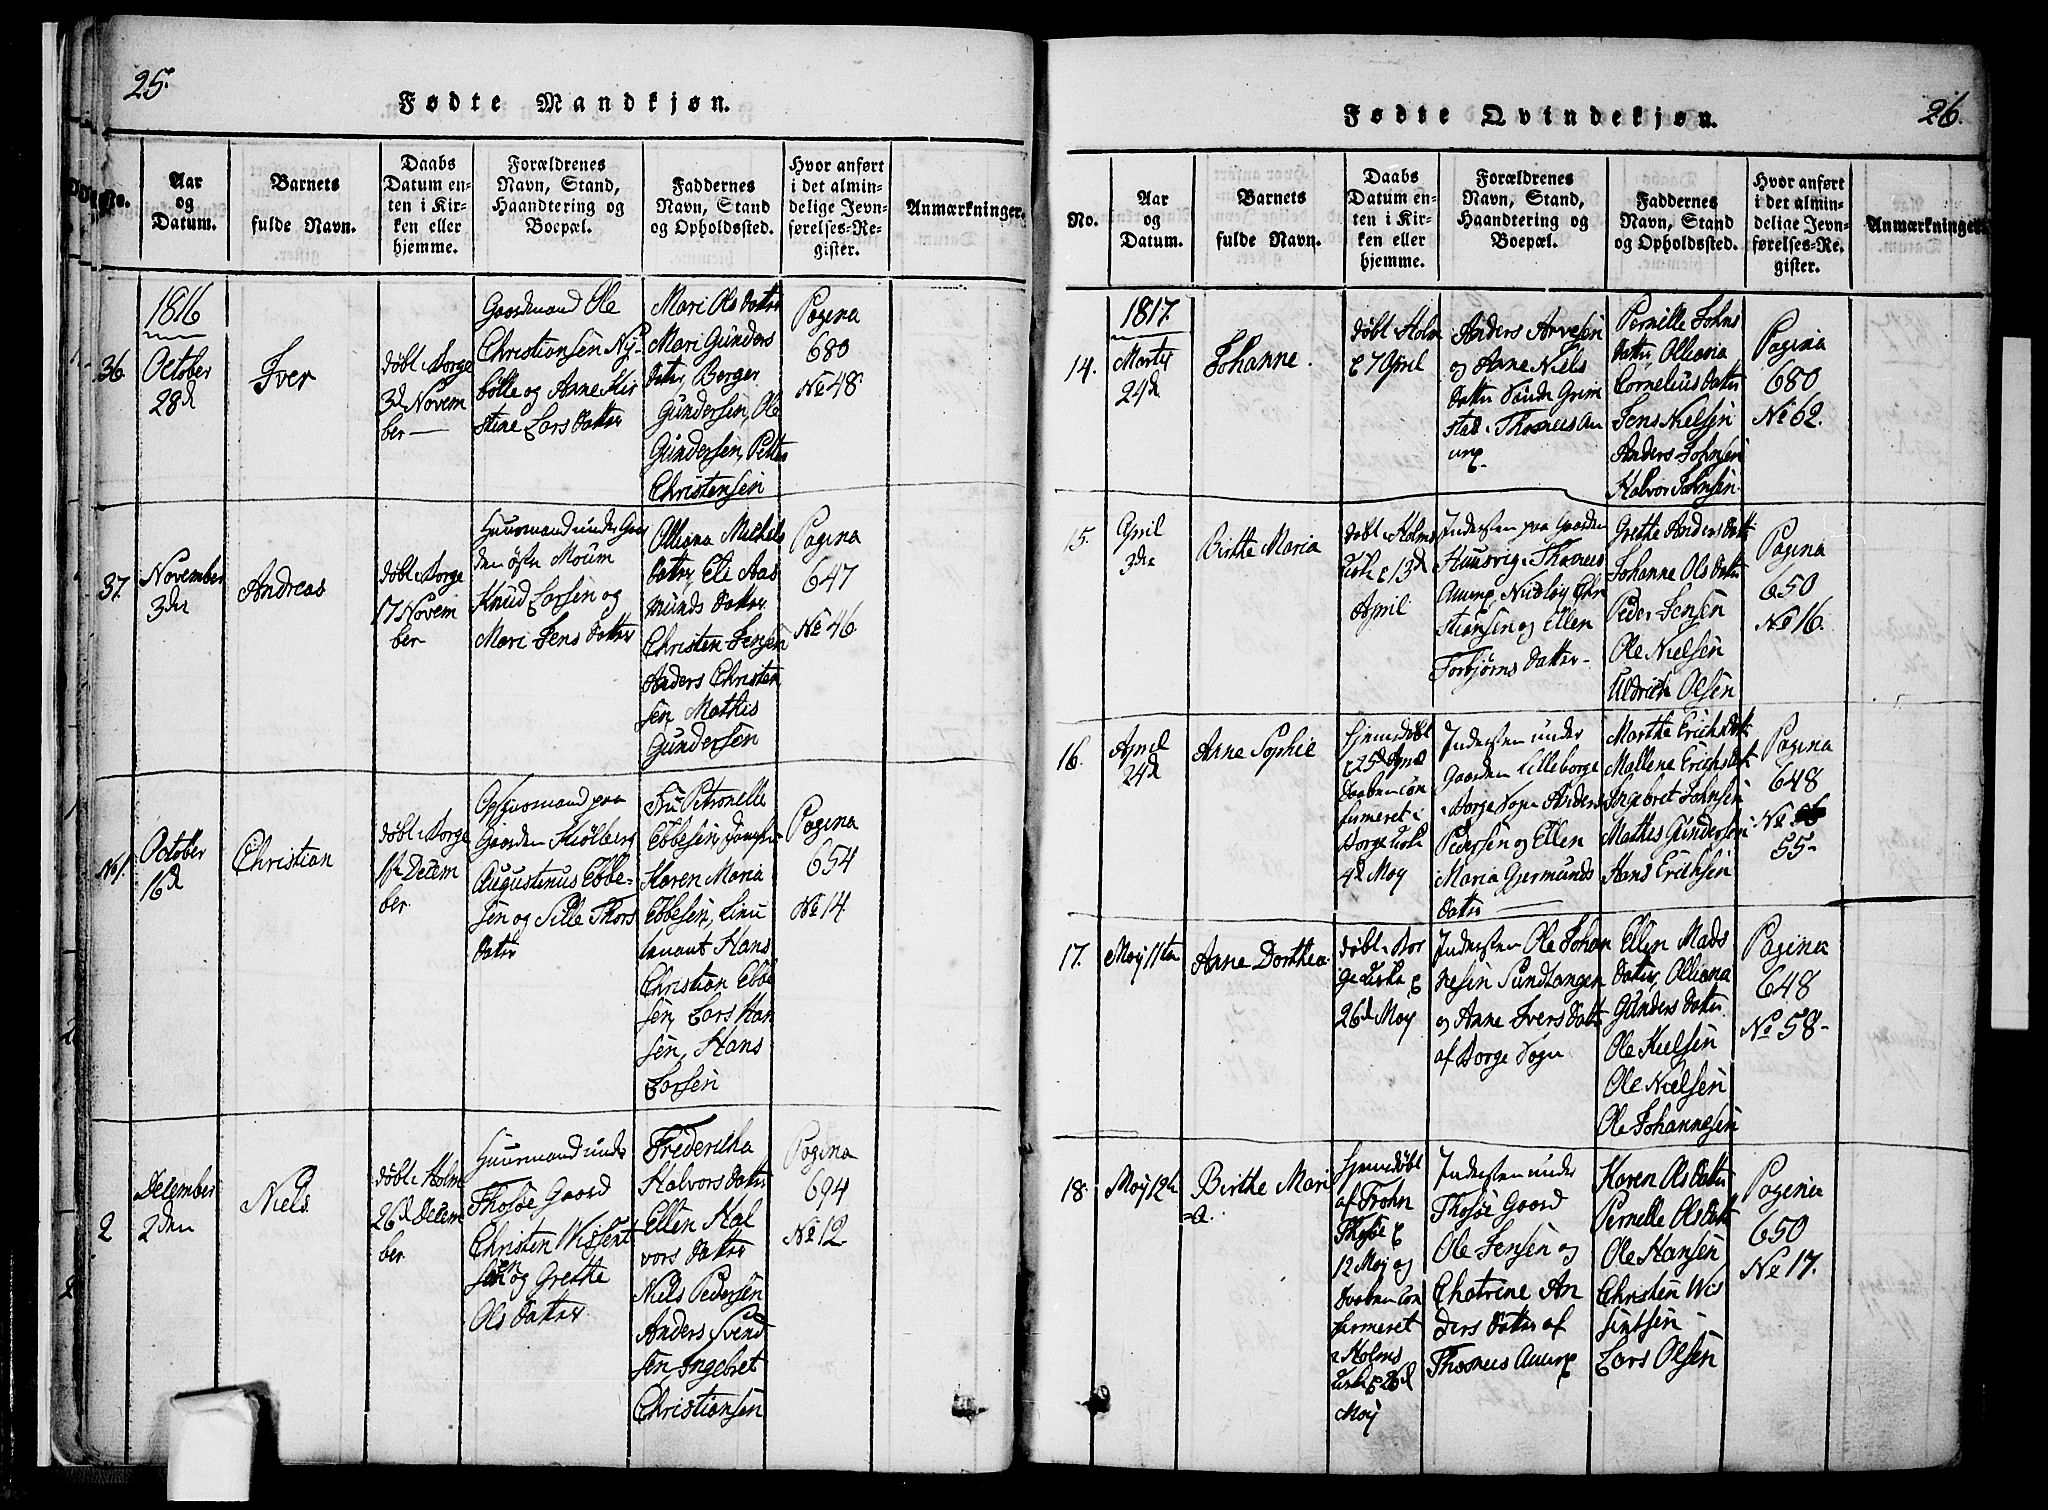 25.
Fødte Mandkjøn.
No.
Aar
og
Datum.
Barnets
fulde Navn.
Daabs
Datum en-
ten i Kir-
ken eller
hjemme.
Forældrenes
Navn, Stand,
Haandtering og
Boepæl.
Faddernes
Navn, Stand
og Opholdssted.
Hvor anført
i det almin-
delige Jevn-
førelses-Re-
gister.
Anmærkninger.
36
1816
October
28d
Iver
døbt i Borge
3d Novem
ber
Gaardmand Ole
Christiansen Ny-
bölle og Anne Kir
stine Lars Datter
Mari Ols Datter
Mari Gunders
Datter, Berger
Gundersen, Ole
Gundersen, Petter
Christensen
Pagina
680
No 48.
37
November
3die
Andreas
døbt i Borge
17 Novem
ber
Huusmand under Gaar
den öfre Moum
Knud Larsen og
Mari Jens Datter
Olliana Michels
Datter, Eli Aas
munds Datter
Christen Jensen
Anders Christen
sen, Mathis
Gundersen
Pagina
647
No 46
No 1.
October
16d
Christian
døbt i Borge
1st Decem
ber
Opsidder paa
Gaarden Kiölberg
Augustenus Ebbe-
sen og Sille Thors
Datter
Fru Petronelle
Ebbesen, Jomfru
Karen Maria
Ebbesen, Lieu
tenant Hans
Christian Ebbe
sen, Lars Han
sen, Hans
Larsen
Pagina
654
No 14
2
December
2den
Niels
døbt i Holm
26d Decem
ber
Huusmand under
Thosöe Gaard
Christen Wissent
sen og Grethe
Ols Datter
Frederikha
Halvors Datter
Ellen Hal
vors Datter
Niels Pedersen
Anders Svend
sen, Ingebret
Christiansen
Pagina
694
No 12.
26.
Fødte Qvindekjøn.
No.
Aar
og
Datum.
Barnets
fulde Navn.
Daabs
Datum en-
ten i Kir-
ken eller
hjemme.
Forældrenes
Navn, Stand,
Haandtering og
Boepæl.
Faddernes
Navn, Stand
og Opholdssted.
Hvor anført
i det almin-
delige Jevn-
førelses-Re-
gister.
Anmærkninger.
14.
1817.
Martz
24d
Johanne.
døbt i Holm
7 April
Anders Arvesen
og Anne Niels
Datter Söndr Grim
stad i Thosnes An
Pernille Johns
Datter, Olliana
Cornelius Datter
Jens Nielsen
Anders Johnsen
Halvor Johnsen
Pagina
680
No 62.
15.
April
3die
Birthe Maria
døbt i Holms
Kirke 13de
April
Inderster paa Gaarden
Huusvig i Thosnes
Christiansen og Ellen
Torbjørns Datter
Grethe Anders Datt
Johanne Ols Datter
Peder Jensen
Ole Nielsen
Uldrich Olsen
Pagina
650
No 16.
16.
April
24d
Anne Sophie
Hjemedøbt
25d April
Daaben Con
firmeret i
Borge Kirke
4d May
Inderster under
Gaarden Lilleborge
i Borge Sogn Anders
Pedersen og Ellen
Maria Gjermunds
Datter
Marthe Erichs Datt.
Mallene Erichs Datt
Ingebret Johnsen
Mathis Gundersen
Hans Erichsen
Pagina
648
No
55
17.
May 11te
Anne Dorthea
døbt i Bor
ge Kirke
26d May
Inderster Ole Johan
nesen Sundlangen
og Anne Ivers Datt
af Borge Sogn
Ellen Mads
Datter, Olliana
Gunders Datter
Ole Kielsen
Ole Nielsen
Ole Johannesen
Pagina
648
No 58
18.
May 12te
Birthe Mari
=a.
Hjemedøbt
af
Thosöe
12 May og
Daaben Con
firmeret
i Holms
Kirke 26d
May
Inderster under
Thosöe Gaard
Ole Jensen og
Chatrine An
ders Datter af
Thosnes
Karen Ols Datter
Pernelle Ols Datt
Ole Hansen
Christen Wis
sintsen
Lars Olsen
Pagina
650
No 17.